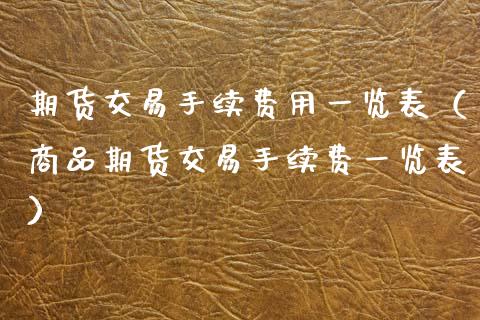 期货交易手续费用一览表（
商品期货交易手续费一览表
）